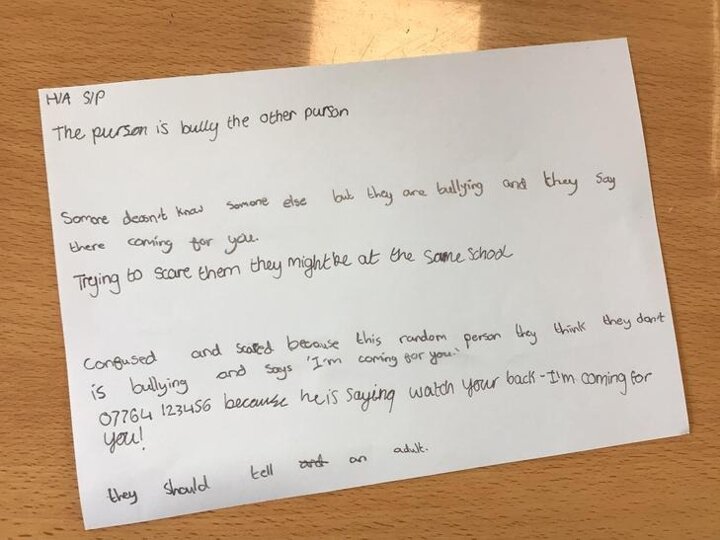 H/A S/P
The purson is bully the other purson
Somone deasn't know somone else but they are bullying and they say
there coming for you.
Trying to scare them they might be at the same school
Confused and scared because this random person they think they don't
is bullying and says 'I'm coming for you.'
07764 123456 because he is saying watch your back - I'm coming for
you!
they should tell and an adult.